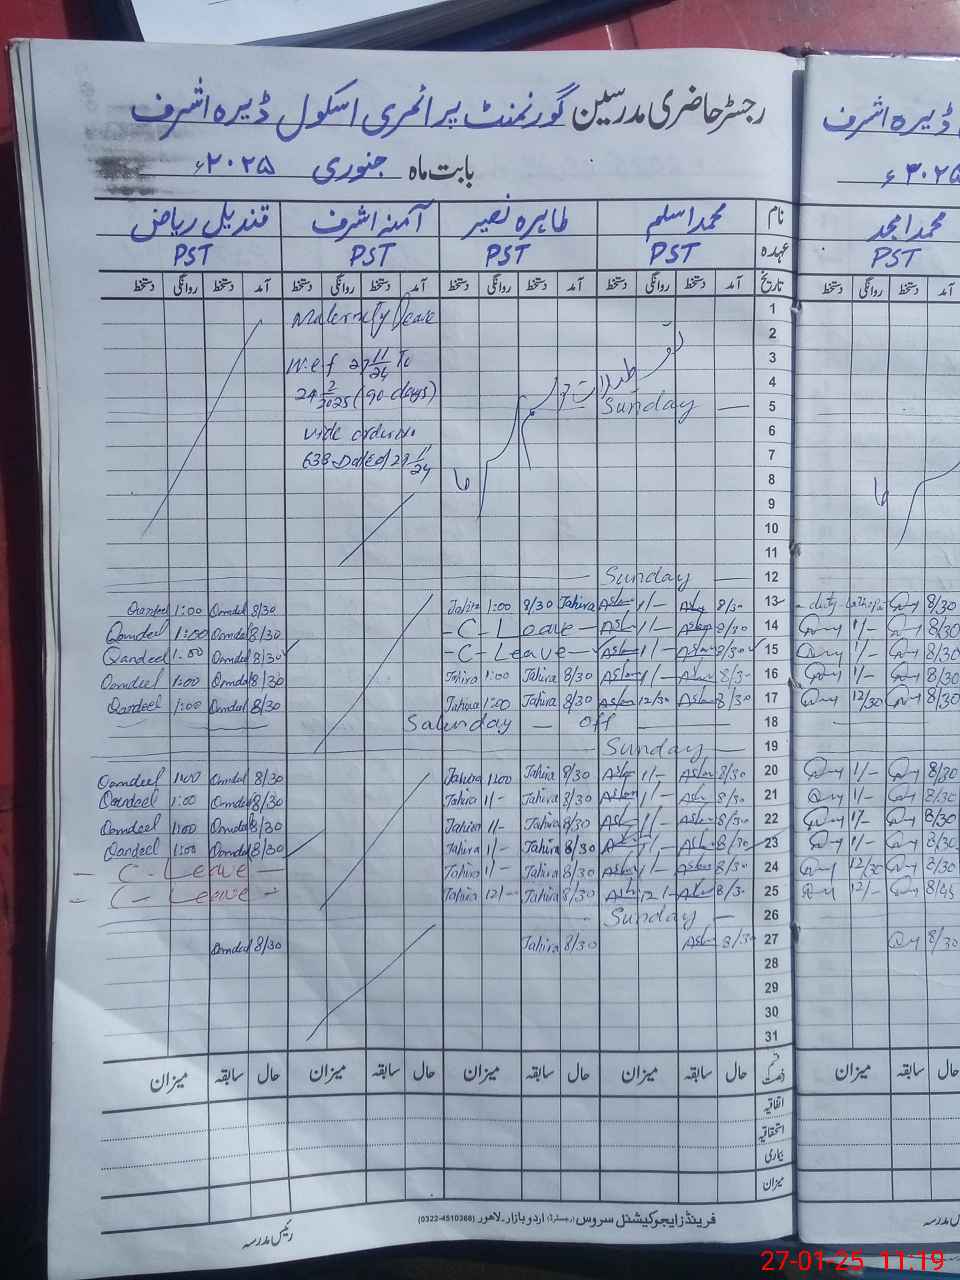 رجسٹر حاضری مدرسین گورنمنٹ پرائمری اسکول ڈیرہ اشرف
بابت ماہ جنوری ۲۰۲۵ء
نام محمد اسلم طاہرہ نصیر آمنہ اشرف قندیل ریاض
عہدہ PST PST PST PST
تاریخ آمد دستخط روانگی دستخط آمد دستخط روانگی دستخط آمد دستخط روانگی دستخط آمد دستخط روانگی دستخط
1 Maternity leave
2
3 W.e.f 27 11/24 To
4 24 2/2025 (90 days)
5 Sunday
6 vide order no.
7 638 Dated 27 11/24
8
9
10
11
12 Sunday
13 Qandeel 1:00 Qandeel 8/30 Tahira 1:00 8/30 Tahira Aslam 1/- Aslam 8/30
14 Qandeel 1:00 Qandeel 8/30 - C - Leave - Aslam 1/- Aslam 8/30
15 Qandeel 1:00 Qandeel 8/30 - C - Leave - Aslam 1/- Aslam 8/30
16 Qandeel 1:00 Qandeel 8/30 Tahira 1:00 Tahira 8/30 Aslam 1/- Aslam 8/30
17 Qandeel 1:00 Qandeel 8/30 Tahira 1:00 Tahira 8/30 Aslam 12/30 Aslam 8/30
18 Saturday - off
19 Sunday
20 Qandeel 1:00 Qandeel 8/30 Tahira 1:00 Tahira 8/30 Aslam 1/- Aslam 8/30
21 Qandeel 1:00 Qandeel 8/30 Tahira 1/- Tahira 8/30 Aslam 1/- Aslam 8/30
22 Qandeel 1:00 Qandeel 8/30 Tahira 1/- Tahira 8/30 Aslam 1/- Aslam 8/30
23 Qandeel 1:00 Qandeel 8/30 Tahira 1/- Tahira 8/30 Aslam 1/- Aslam 8/30
24 - C - Leave - Tahira 1/- Tahira 8/30 Aslam 1/- Aslam 8/30
25 - C - Leave - Tahira 12/- Tahira 8/30 Aslam 12/- Aslam 8/30
26 Sunday
27 Qandeel 8/30 Tahira 8/30 Aslam 8/30
28
29
30
31
قسم رخصت حال سابقہ میزان حال سابقہ میزان حال سابقہ میزان حال سابقہ میزان
اتفاقیہ
استحقاقیہ
بیماری
میزان
فرینڈز ایجوکیشنل سروس (رجسٹرڈ) اردو بازار۔ لاہور (0322-4510366)
رئیس مدرسہ
ڈیرہ اشرف
۲۰۲۵ء
محمد امجد
PST
آمد دستخط روانگی دستخط
8/30
1/- 8/30
1/- 8/30
1/- 8/30
12/30 8/30
1/- 8/30
1/- 8/30
1/- 8/30
1/- 8/30
12/30 8/30
12/- 8/45
8/30
حال سابقہ میزان
27-01-25 11:19